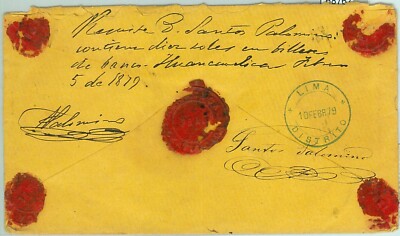 Remite D. Santos Palomino
contiene diez soles en billetes
de banco Huancavelica Febro
5 de 1879
LIMA.
10 FEBR 79
DISTRITO
Palomino
Santos Palomino